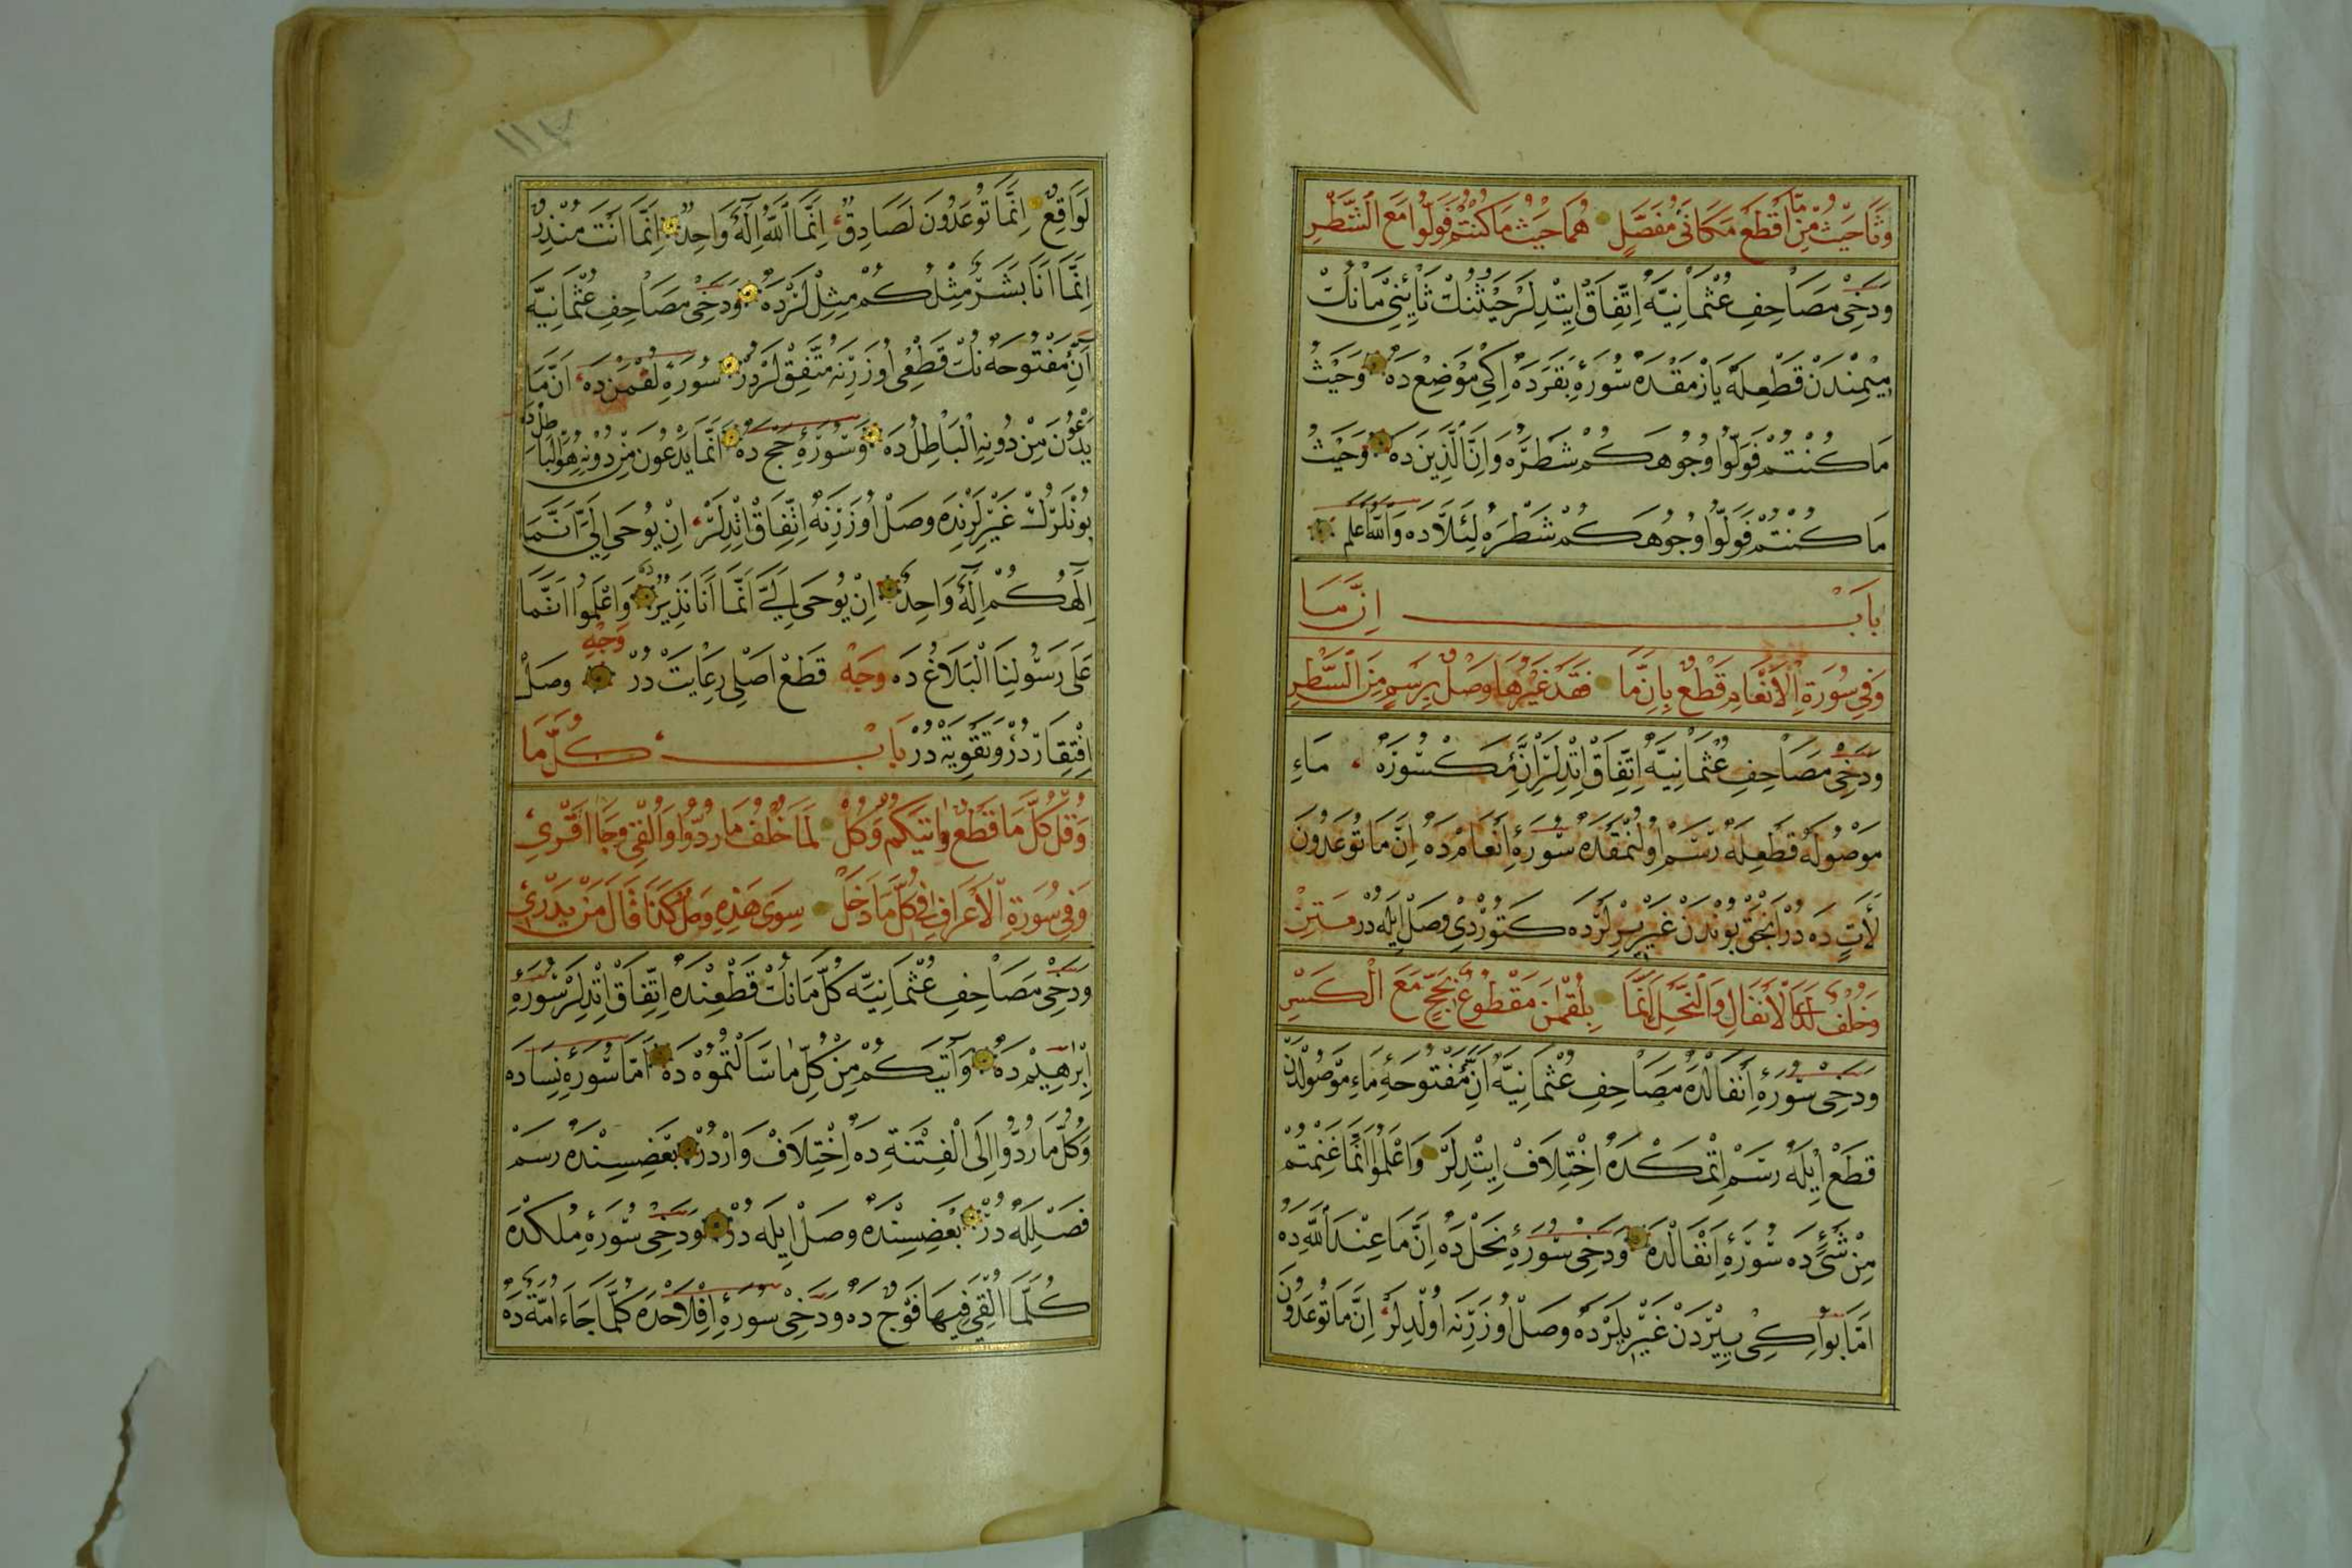 وَثَا حَيْثُ مِنْ مَا اقْطَعْ مَكَانَىْ مُفَصَّلٍ هُمَا حَيْثُ مَا كُنْتُمْ فَوَلُّوا مَعَ الشَّطْرِ
وَدَخِى مَصَاحِفِ عُثْمَانِيَّهْ اِتِّفَاقْ اِيتْدِيلَرْ حَيْثُنُكْ ثَائِنِىْ مَانُكْ
مِيمِنْدَنْ قَطْعِلَهْ يَازْمَقْدَهْ سُورَۀِ بَقَرَدَهْ اِكِى مَوْضِعْدَهْ وَحَيْثُ
مَا كُنْتُمْ فَوَلُّوا وُجُوهَكُمْ شَطْرَهُ وَاِنَّ الَّذِينَ دَهْ وَحَيْثُ
مَا كُنْتُمْ فَوَلُّوا وُجُوهَكُمْ شَطْرَهُ لِئَلَّا دَهْ وَاللهُ اَعْلَمُ
بَابْ اِنَّ مَا
وَفِي سُورَةِ الْاَنْعَامِ قَطْعٌ بِاِنَّ مَا فَقَدْ غَيْرُهَا وَصْلٌ بِرَسْمٍ مِنَ السَّطْرِ
وَدَخِى مَصَاحِفِ عُثْمَانِيَّهْ اِتِّفَاقْ اِتْدِيلَرْ اِنَّ مَكْسُورَهْ مَاءِ
مَوْصُولَهْ قَطْعِلَهْ رَسْمْ اُولُنْمَقْدَهْ سُورَۀِ اَنْعَامْدَهْ اِنَّ مَا تُوعَدُونَ
لَاٰتٍ دَهْ دُرْ اَنْجَقْ بُونْدَنْ غَيْرِ يِرْلَرْدَهْ كَتُورْدِى وَصْلْ اِيلَهْ دُرْ مَتِنْ
وَخُلْفٌ لَدَى الْاَنْفَالِ وَالنَّحْلِ اِنَّمَا بِلُقْمٰنَ مَقْطُوعٌ بِحَجٍّ مَعَ الْكَسْرِ
وَدَخِى سُورَۀِ اَنْفَالْدَهْ مَصَاحِفِ عُثْمَانِيَّهْ اَنَّ مَفْتُوحَۀِ مَاءِ مَوْصُولْدَنْ
قَطْعْ اِيلَهْ رَسْمْ اِتْمَكْدَهْ اِخْتِلَافْ اِيتْدِيلَرْ وَاعْلَمُوا اَنَّمَا غَنِمْتُمْ
مِنْ شَيْءٍ دَهْ سُورَۀِ اَنْفَالْدَهْ وَدَخِى سُورَۀِ نَحَلْدَهْ اِنَّمَا عِنْدَ اللّٰهِ دَهْ
اَمَّا بُو اِكِى يِيرْدَنْ غَيْرِ يِلَرْدَهْ وَصْلْ اُوزَرِنَهْ اُولْدِيلَرْ اِنَّ مَا تُوعَدُونَ
لَوَاقِعٌ اِنَّمَا تُوعَدُونَ لَصَادِقٌ اِنَّمَا اللّٰهُ اِلٰهٌ وَاحِدٌ اِنَّمَا اَنْتَ مُنْذِرٌ
اِنَّمَا اَنَا بَشَرٌ مِثْلُكُمْ مِثِلْلَرْدَهْ وَدَخِى مَصَاحِفِ عُثْمَانِيَّهْ
اَنَّ مَفْتُوحَهْ نُكْ قَطْعِى اُوزَرِنَهْ مُتَّفِقْلَرْدُرْ سُورَۀِ لُقْمٰنْ دَهْ اَنَّ مَا
يَدْعُونَ مِنْ دُونِهِ الْبَاطِلُ دَهْ وَسُورَۀِ حَجْ دَهْ اَنَّمَا يَدْعُونَ مِنْ دُونِهِ هُوَ الْبَاطِلُ دَهْ
بُونْلَرُكْ غَيْرِلَرِنْدَهْ وَصْلْ اُوزَرِنَهْ اِتِّفَاقْ اِتْدِيلَرْ اِنْ يُوحَى اِلَيَّ اَنَّمَا
اِلٰهُكُمْ اِلٰهٌ وَاحِدٌ اِنْ يُوحَى اِلَيَّ اَنَّمَا اَنَا نَذِيرٌ وَاعْلَمُوا اَنَّمَا
عَلَى رَسُولِنَا الْبَلَاغُ دَهْ وَجْهِ قَطْعْ اَصْلِى رِعَايَتْ دُرْ وَجْهِ وَصْلْ
اِفْتِقَارْ دُرْ وَتَقْوِيَهْ دُرْ بَابْ كُلَّ مَا
وَقُلْ كُلِّ مَا قَطْعٌ وَاٰتٰيكُمْ وَكُلُّ لَمَا خُلْفُ مَا رُدُّوا وَاُلْقِي وَجَا اقْرِي
وَفِي سُورَةِ الْاَعْرَافِ فِي كُلَّمَا دَخَلْ سِوَى هٰذِهِ وَصْلٌ كَذَا قَالَ مَنْ يَدْرِي
وَدَخِى مَصَاحِفِ عُثْمَانِيَّهْ كُلِّ مَانُكْ قَطْعِنْدَهْ اِتِّفَاقْ اِتْدِيلَرْ سُورَۀِ
اِبْرٰهِيمْ دَهْ وَاٰتٰيكُمْ مِنْ كُلِّ مَا سَاَلْتُمُوهُ دَهْ اَمَّا سُورَۀِ نِسَادَهْ
وَكُلَّ مَا رُدُّوا اِلَى الْفِتْنَةِ دَهْ اِخْتِلَافْ وَارْدُرْ بَعْضِيسِنْدَهْ رَسْمْ
فَصْلِلَهْ دُرْ بَعْضِيسِنْدَهْ وَصْلْ اِيلَهْ دُرْ وَدَخِى سُورَۀِ مُلْكْدَهْ
كُلَّمَا اُلْقِيَ فِيهَا فَوْجٌ دَهْ وَدَخِى سُورَۀِ اَفْلَحْدَهْ كُلَّمَا جَاءَ اُمَّةً دَهْ